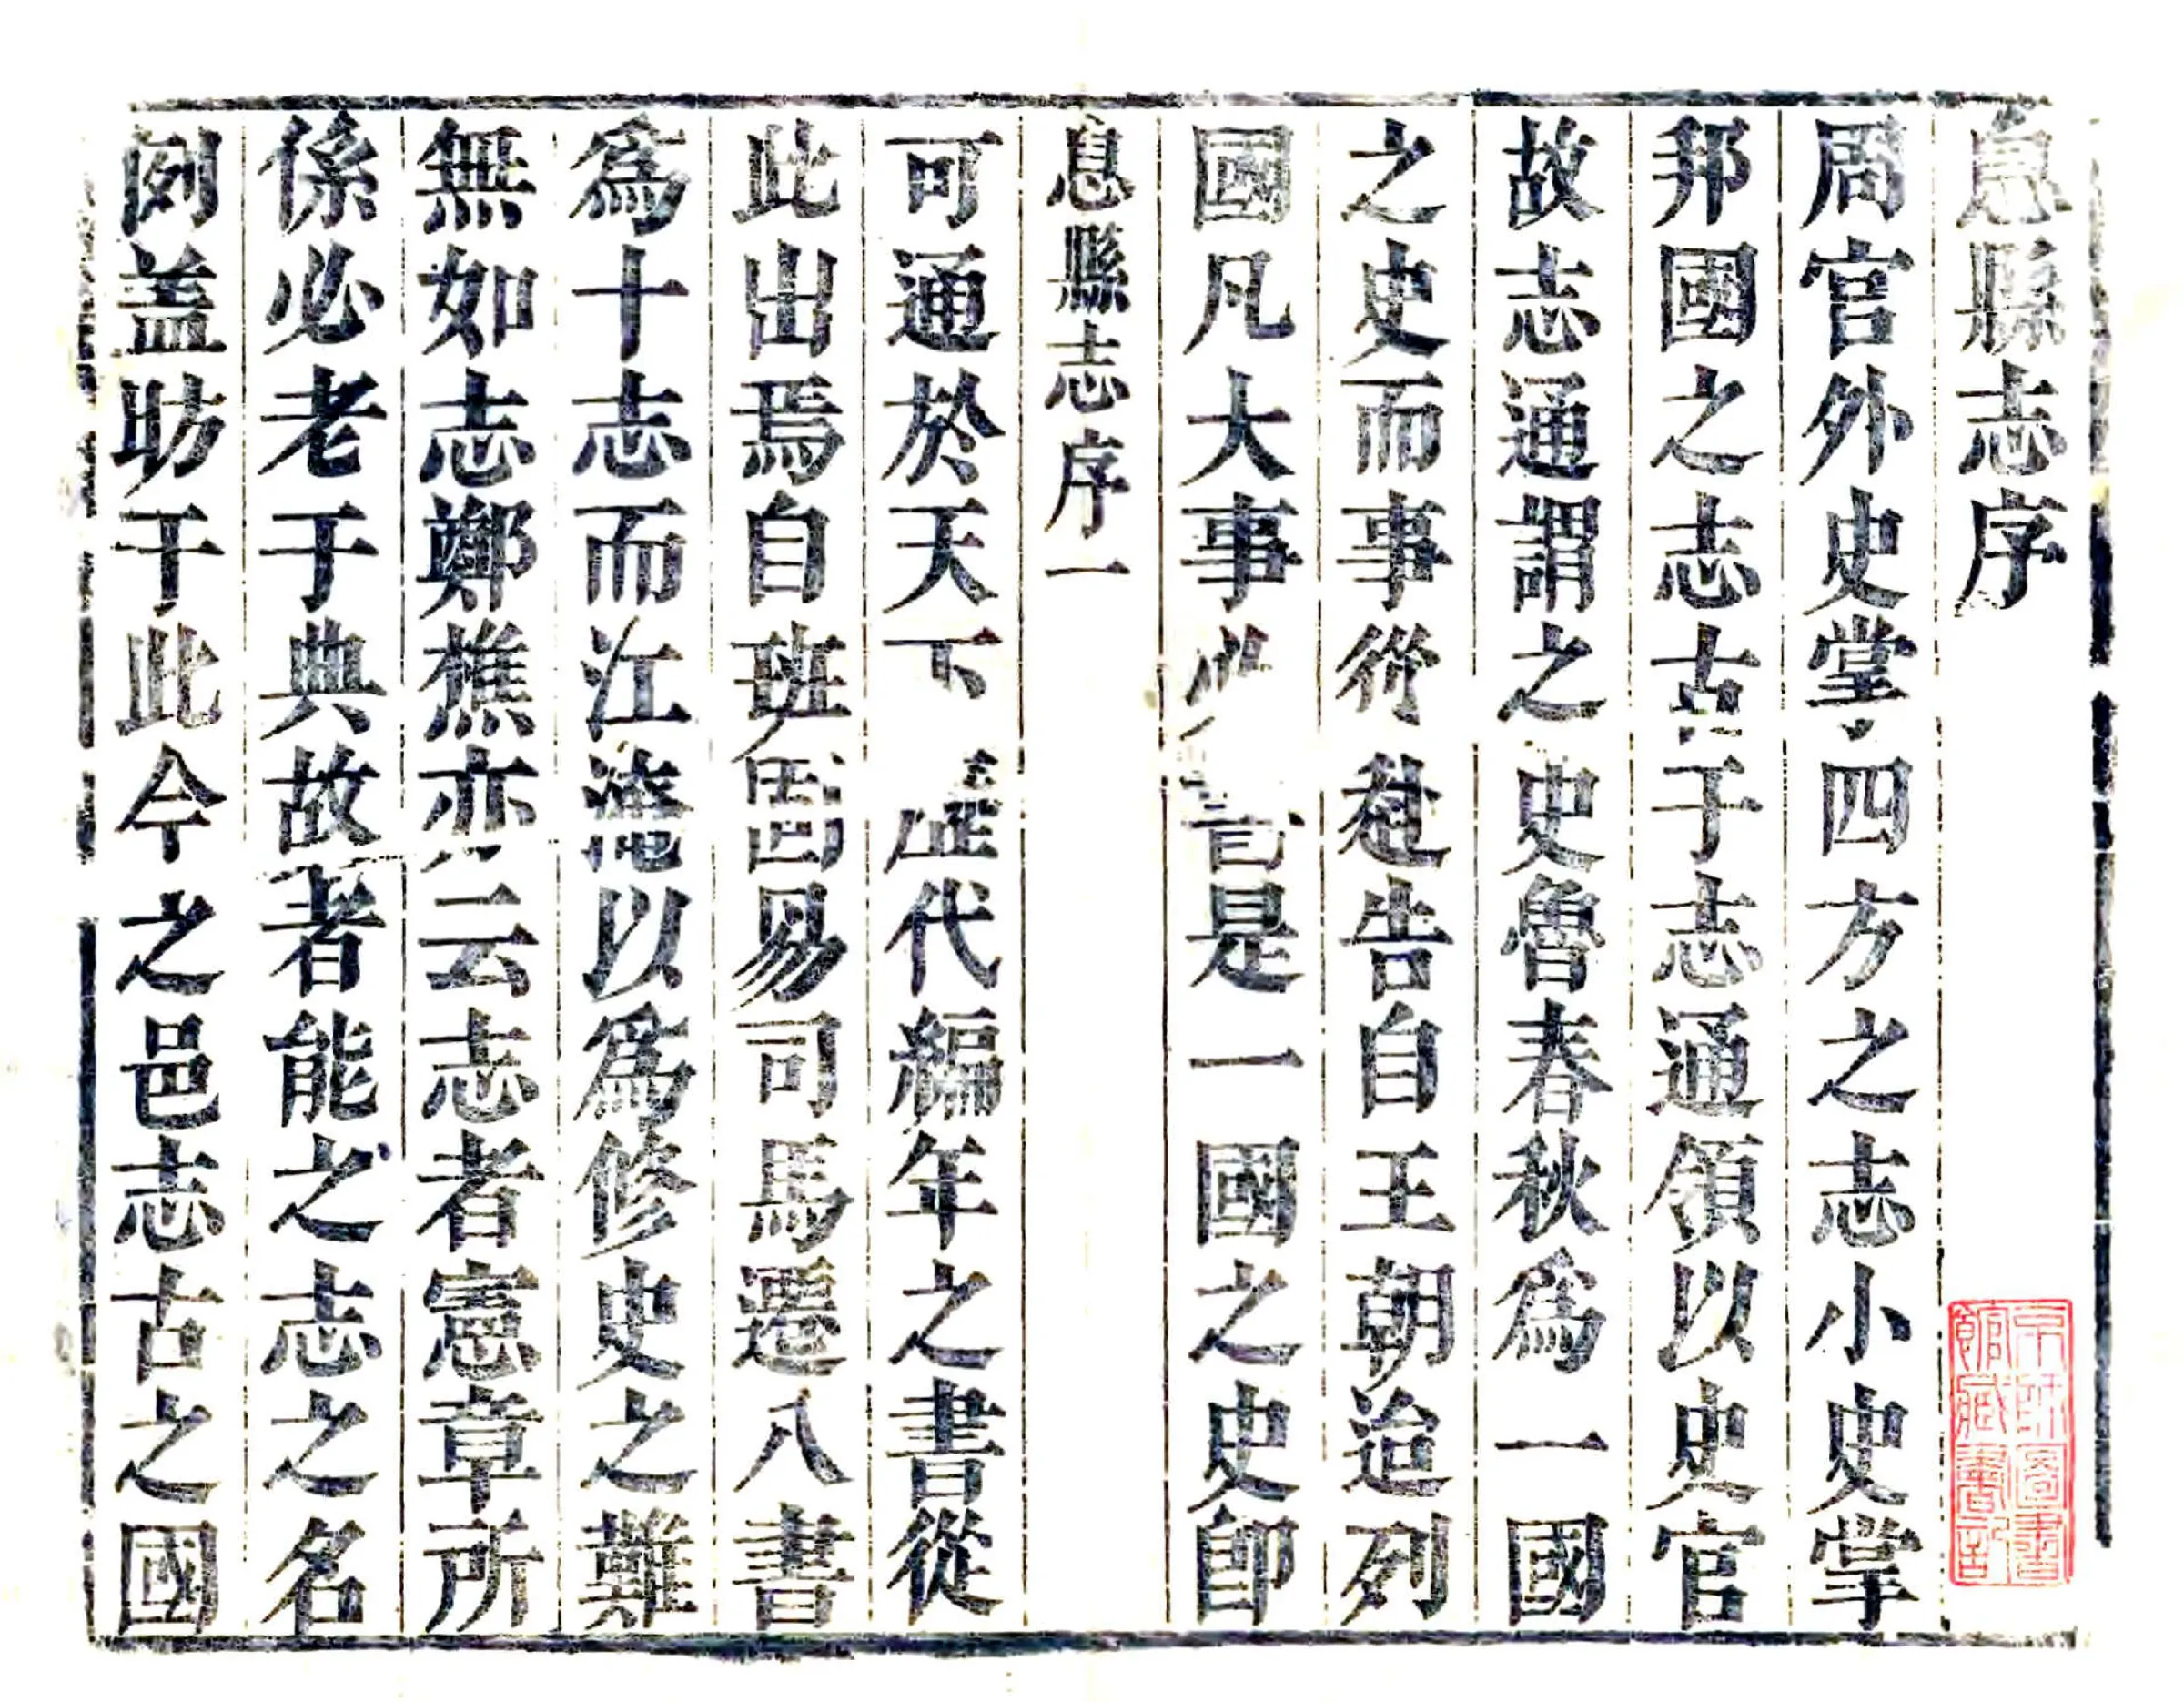 息縣志序
周官外史掌四方之志小史掌
邦國之志古于志通領以史官
故志通謂之史魯春秋為一國
之史而事從赴告自王朝迨列
國凡大事 書是一國之史即
息縣志序一
可通於天下 歷代編年之書從
此出焉自班固易司馬遷八書
為十志而江淹以為修史之難
無如志鄭樵亦云志者憲章所
係必老于典故者能之志之名
例蓋昉于此今之邑志古之國
圖書
館藏書記